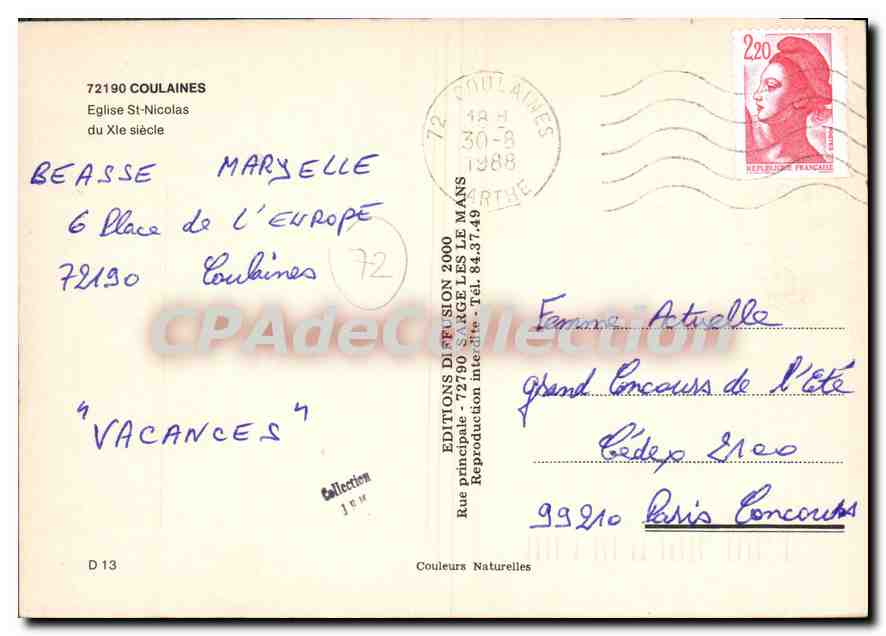 72190 COULAINES
Eglise St-Nicolas
du XIe siècle
BEASSE MARYELLE
6 Place de l'EUROPE
72190 Coulaines
72
"VACANCES"
Collection
D 13
72 COULAINES
30-8
1988
SARTHE
EDITIONS DIFFUSION 2000
Rue principale - 72790 SARGE LES LE MANS
Reproduction interdite - Tél. 84.37.49
Couleurs Naturelles
2,20
REPUBLIQUE FRANÇAISE
Femme Actuelle
grand Concours de l'Eté
Cédex 2100
99210 Paris Concours
CPAdeCollection.com